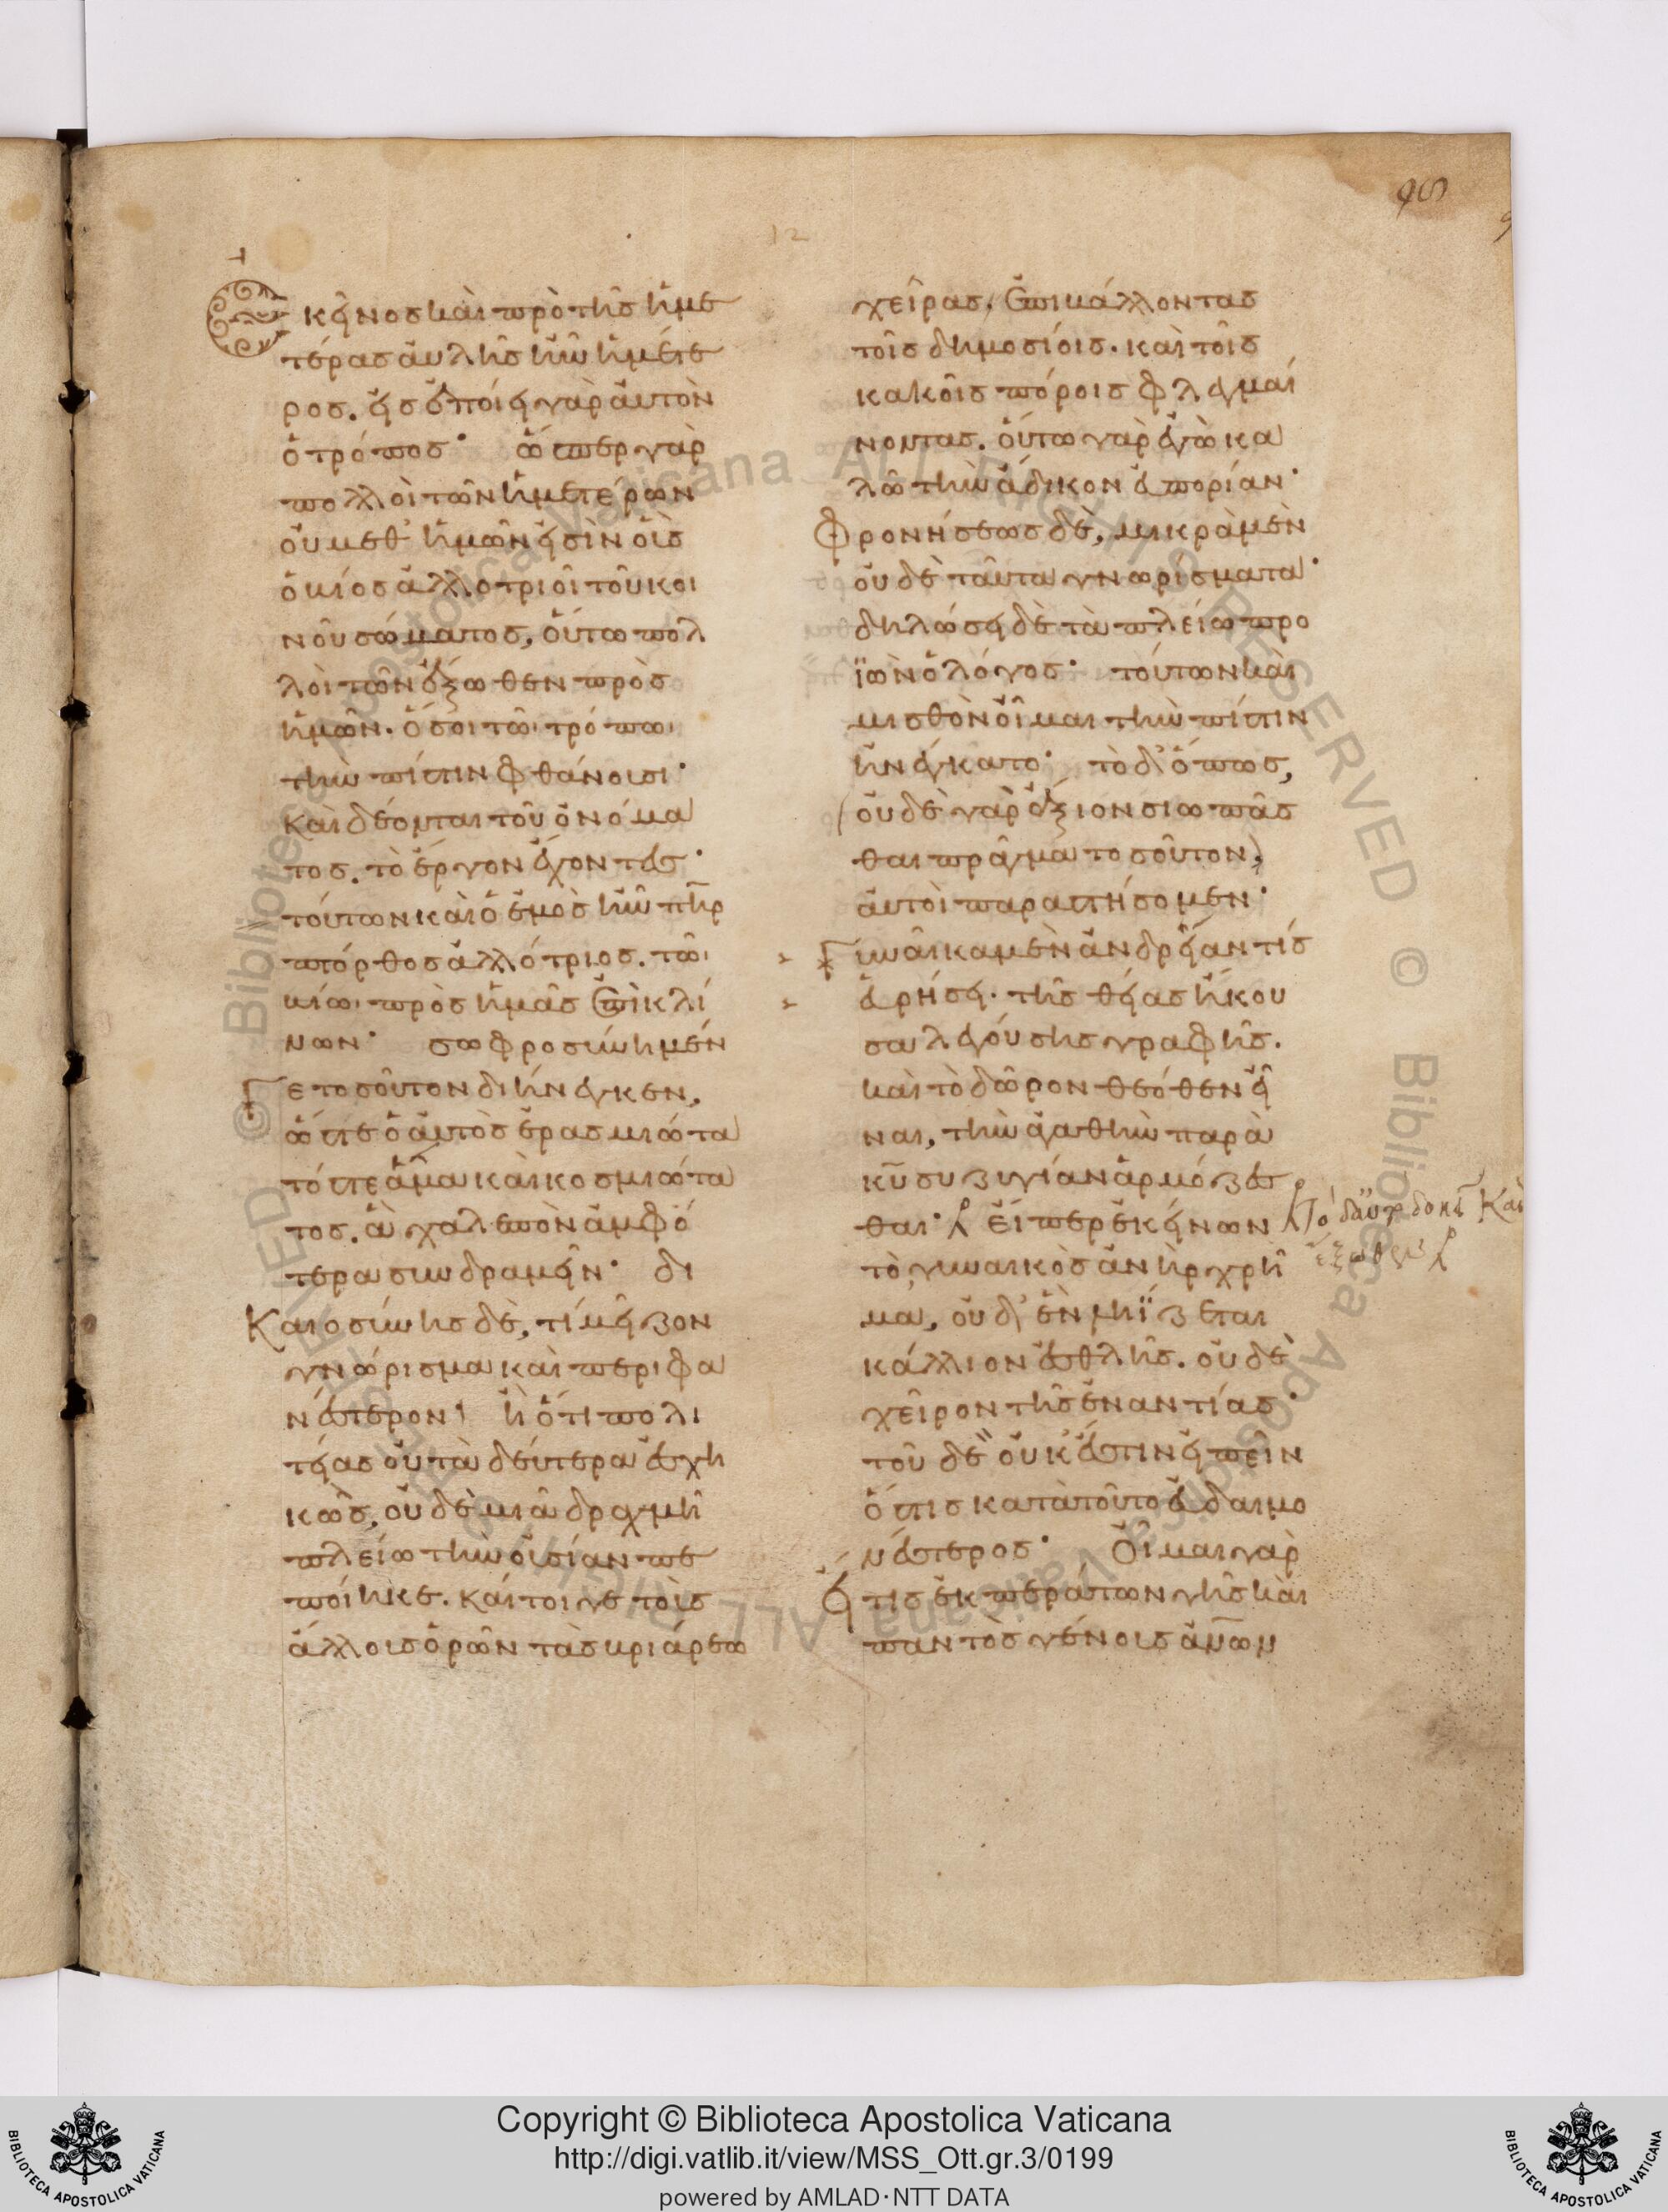 ϟς
12
Ἐκεῖνος καὶ πρὸ τῆς ἡμε
τέρας αὐλῆς ἦν ἡμέτε
ρος. εἰσεποίει γὰρ αὐτὸν
ὁ τρόπος· ὥσπερ γὰρ
πολλοὶ τῶν ἡμετέρων
οὐ μεθ' ἡμῶν εἰσὶν οἷς
ὁ βίος ἀλλοτριοῖ τοῦ κοι
νοῦ σώματος, οὕτω πολ
λοὶ τῶν ἔξωθεν πρὸς
ἡμῶν. ὅσοι τῶι τρόπωι
τὴν πίστιν φθάνουσι·
καὶ δέονται τοῦ ὀνόμα
τος. τὸ ἔργον ἔχοντες·
τούτων καὶ ὁ ἐμὸς ἦν πηρ
πτόρθος ἀλλότριος. τῶι
βίωι πρὸς ἡμᾶς ἐπικλί
νων· σωφροσύνη μέν
γε τοσοῦτον διήνεγκεν,
ὥστε ὁ αὐτὸς ἐρασμιώτα
τός τε ἅμα καὶ κοσμιώτα
τος. ἃ χαλεπὸν ἀμφό
τερα συνδραμεῖν· δι
Καιοσύνης δὲ, τί μεῖζον
γνώρισμα καὶ περιφα
νέστερον; ἢ ὅτι πολι
τείας οὐ τὰ δεύτερα ἐσχη
κὼς, οὐδὲ μιᾶ δραχμῆ
πλείω τὴν οὐσίαν πε
ποίηκε. καίτοιγε τοὺς
ἄλλους ὁρῶν τὰς βριάρεω
χεῖρας, ἐπιβάλλοντας
τοῖς δημοσίοις. καὶ τοῖς
κακοῖς πόροις φλεγμαί
νοντας. οὕτω γὰρ ἐγὼ κα
λῶ τὴν ἄδικον εὐπορίαν·
Φρονήσεως δὲ, μικρὰ μὲν
οὐδὲ ταῦτα γνωρίσματα·
δηλώσει δὲ τὰ πλείω προ
ϊὼν ὁ λόγος· τούτων καὶ
μισθὸν οἶμαι τὴν πίστιν
ἠνέγκατο· τὸ δ' ὅπως,
(οὐδὲ γὰρ ἄξιον σιωπᾶσ
θαι πρᾶγμα τοσοῦτον)
αὐτοὶ παραστήσομεν·
Γυναῖκα μὲν ἀνδρείαν τίς
εὑρήσει. τῆς θείας ἤκου
σα λεγούσης γραφῆς.
καὶ τὸ δῶρον θεόθεν εἶ
ναι, τὴν ἀγαθὴν παρὰ
κυ συζυγίαν ἁρμόζεσ
θαι· εἴπερ ἐκείνων
τὸ, γυναικὸς ἀνὴρ χρῆ
μα, οὐδὲν ληΐζεται
κάλλιον ἐσθλῆς. οὐδὲ
χεῖρον τῆς ἐναντίας·
τοῦδε οὐκ ἔστιν εἰπεῖν
ὅστις κατὰ τοῦτο εὐδαιμο
νέστερος· Οἶμαι γὰρ
εἴ τις ἐκ περάτων γῆς καὶ
παντὸς γένους ἀνων
ἔξωθεν
Copyright © Biblioteca Apostolica Vaticana
http://digi.vatlib.it/view/MSS_Ott.gr.3/0199
powered by AMLAD·NTT DATA
BIBLIOTECA APOSTOLICA VATICANA
BIBLIOTECA APOSTOLICA VATICANA